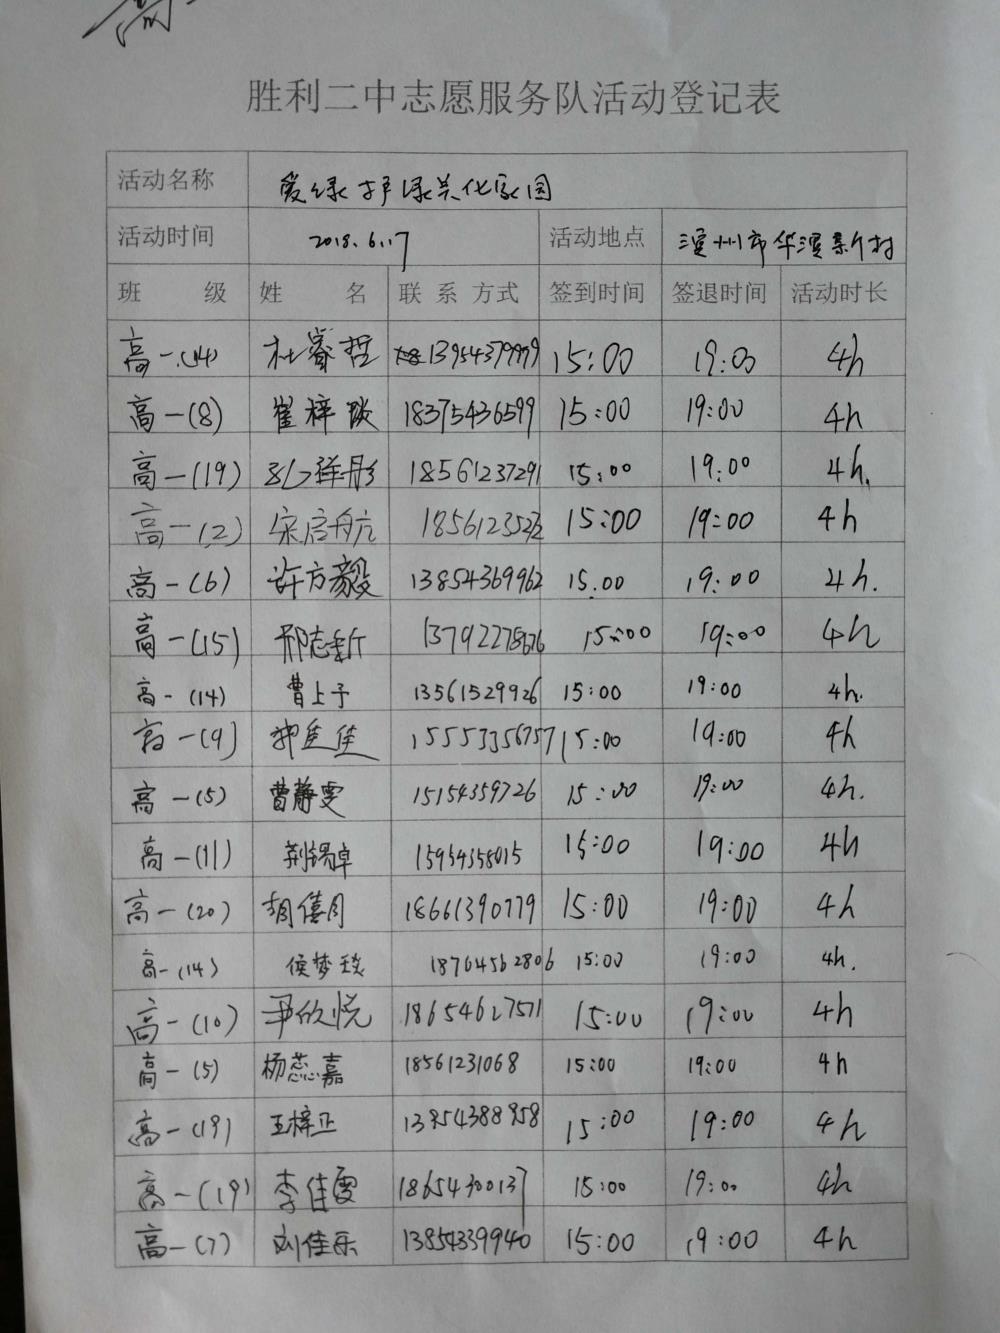 高一
胜利二中志愿服务队活动登记表
活动名称 爱绿护绿美化家园
活动时间 2018.6.17 活动地点 滨州市华滨新村
班 级 姓 名 联 系 方式 签到时间 签退时间 活动时长
高一(14) 杜睿哲 13954379979 15:00 19:00 4h
高一(8) 崔梓琰 18375436599 15:00 19:00 4h
高一(19) 孔祥彤 18561237291 15:00 19:00 4h.
高一(2) 宋启航 15:00 19:00 4h
高一(6) 许方毅 13854369962 15.00 19:00 4h.
高一(15) 邢志新 13792278676 15:00 19:00 4h
高一(14) 曹上子 13561529926 15:00 19:00 4h.
高一(9) 15553356757 15:00 19:00 4h
高一(5) 曹静雯 15154359726 15:00 19:00 4h.
高一(11) 荆锡卓 15954358015 15:00 19:00 4h
高一(20) 胡僖月 18661390779 15:00 19:00 4h
高一(14) 侯梦玟 18764562806 15:00 19:00 4h.
高一(10) 尹欣悦 18654627571 15:00 19:00 4h
高一(5) 杨蕊嘉 18561231068 15:00 19:00 4h
高一(19) 王梓正 13854388958 15:00 19:00 4h
高一(19) 李佳雯 18654300137 15:00 19:00 4h
高一(7) 刘佳乐 13854339940 15:00 19:00 4h